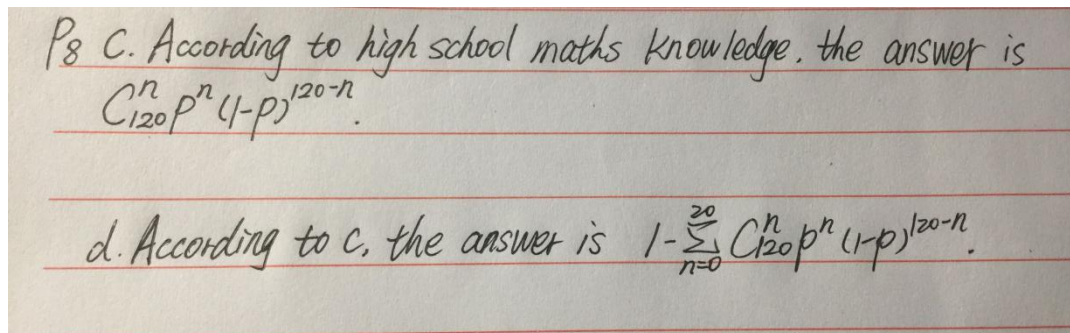 P8 C. According to high school maths knowledge, the answer is
C₁₂₀ⁿ pⁿ (1-p)¹²⁰⁻ⁿ.
d. According to c, the answer is 1-∑ₙ₌₀²⁰ C₁₂₀ⁿ pⁿ (1-p)¹²⁰⁻ⁿ.